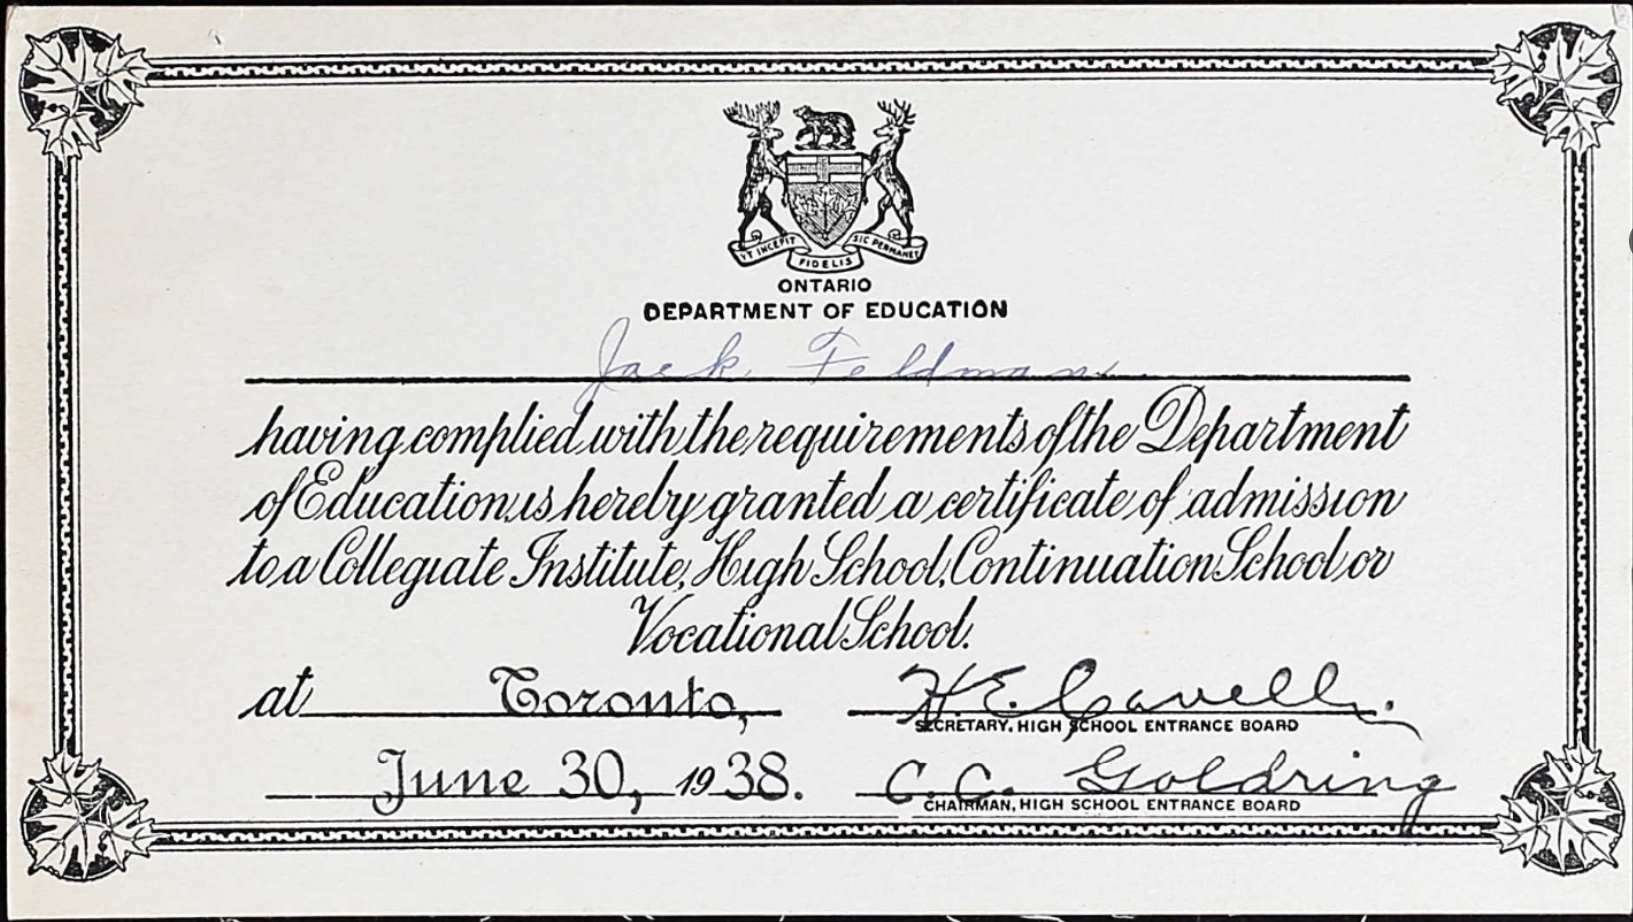 VT INCEPIT FIDELIS SIC PERMANET
ONTARIO
DEPARTMENT OF EDUCATION
Jack Feldman
having complied with the requirements of the Department
of Education, is hereby granted a certificate of admission
to a Collegiate Institute, High School, Continuation School or
Vocational School.
at Toronto,
H. E. Cavell.
SECRETARY, HIGH SCHOOL ENTRANCE BOARD
June 30, 1938.
C. C. Goldring
CHAIRMAN, HIGH SCHOOL ENTRANCE BOARD